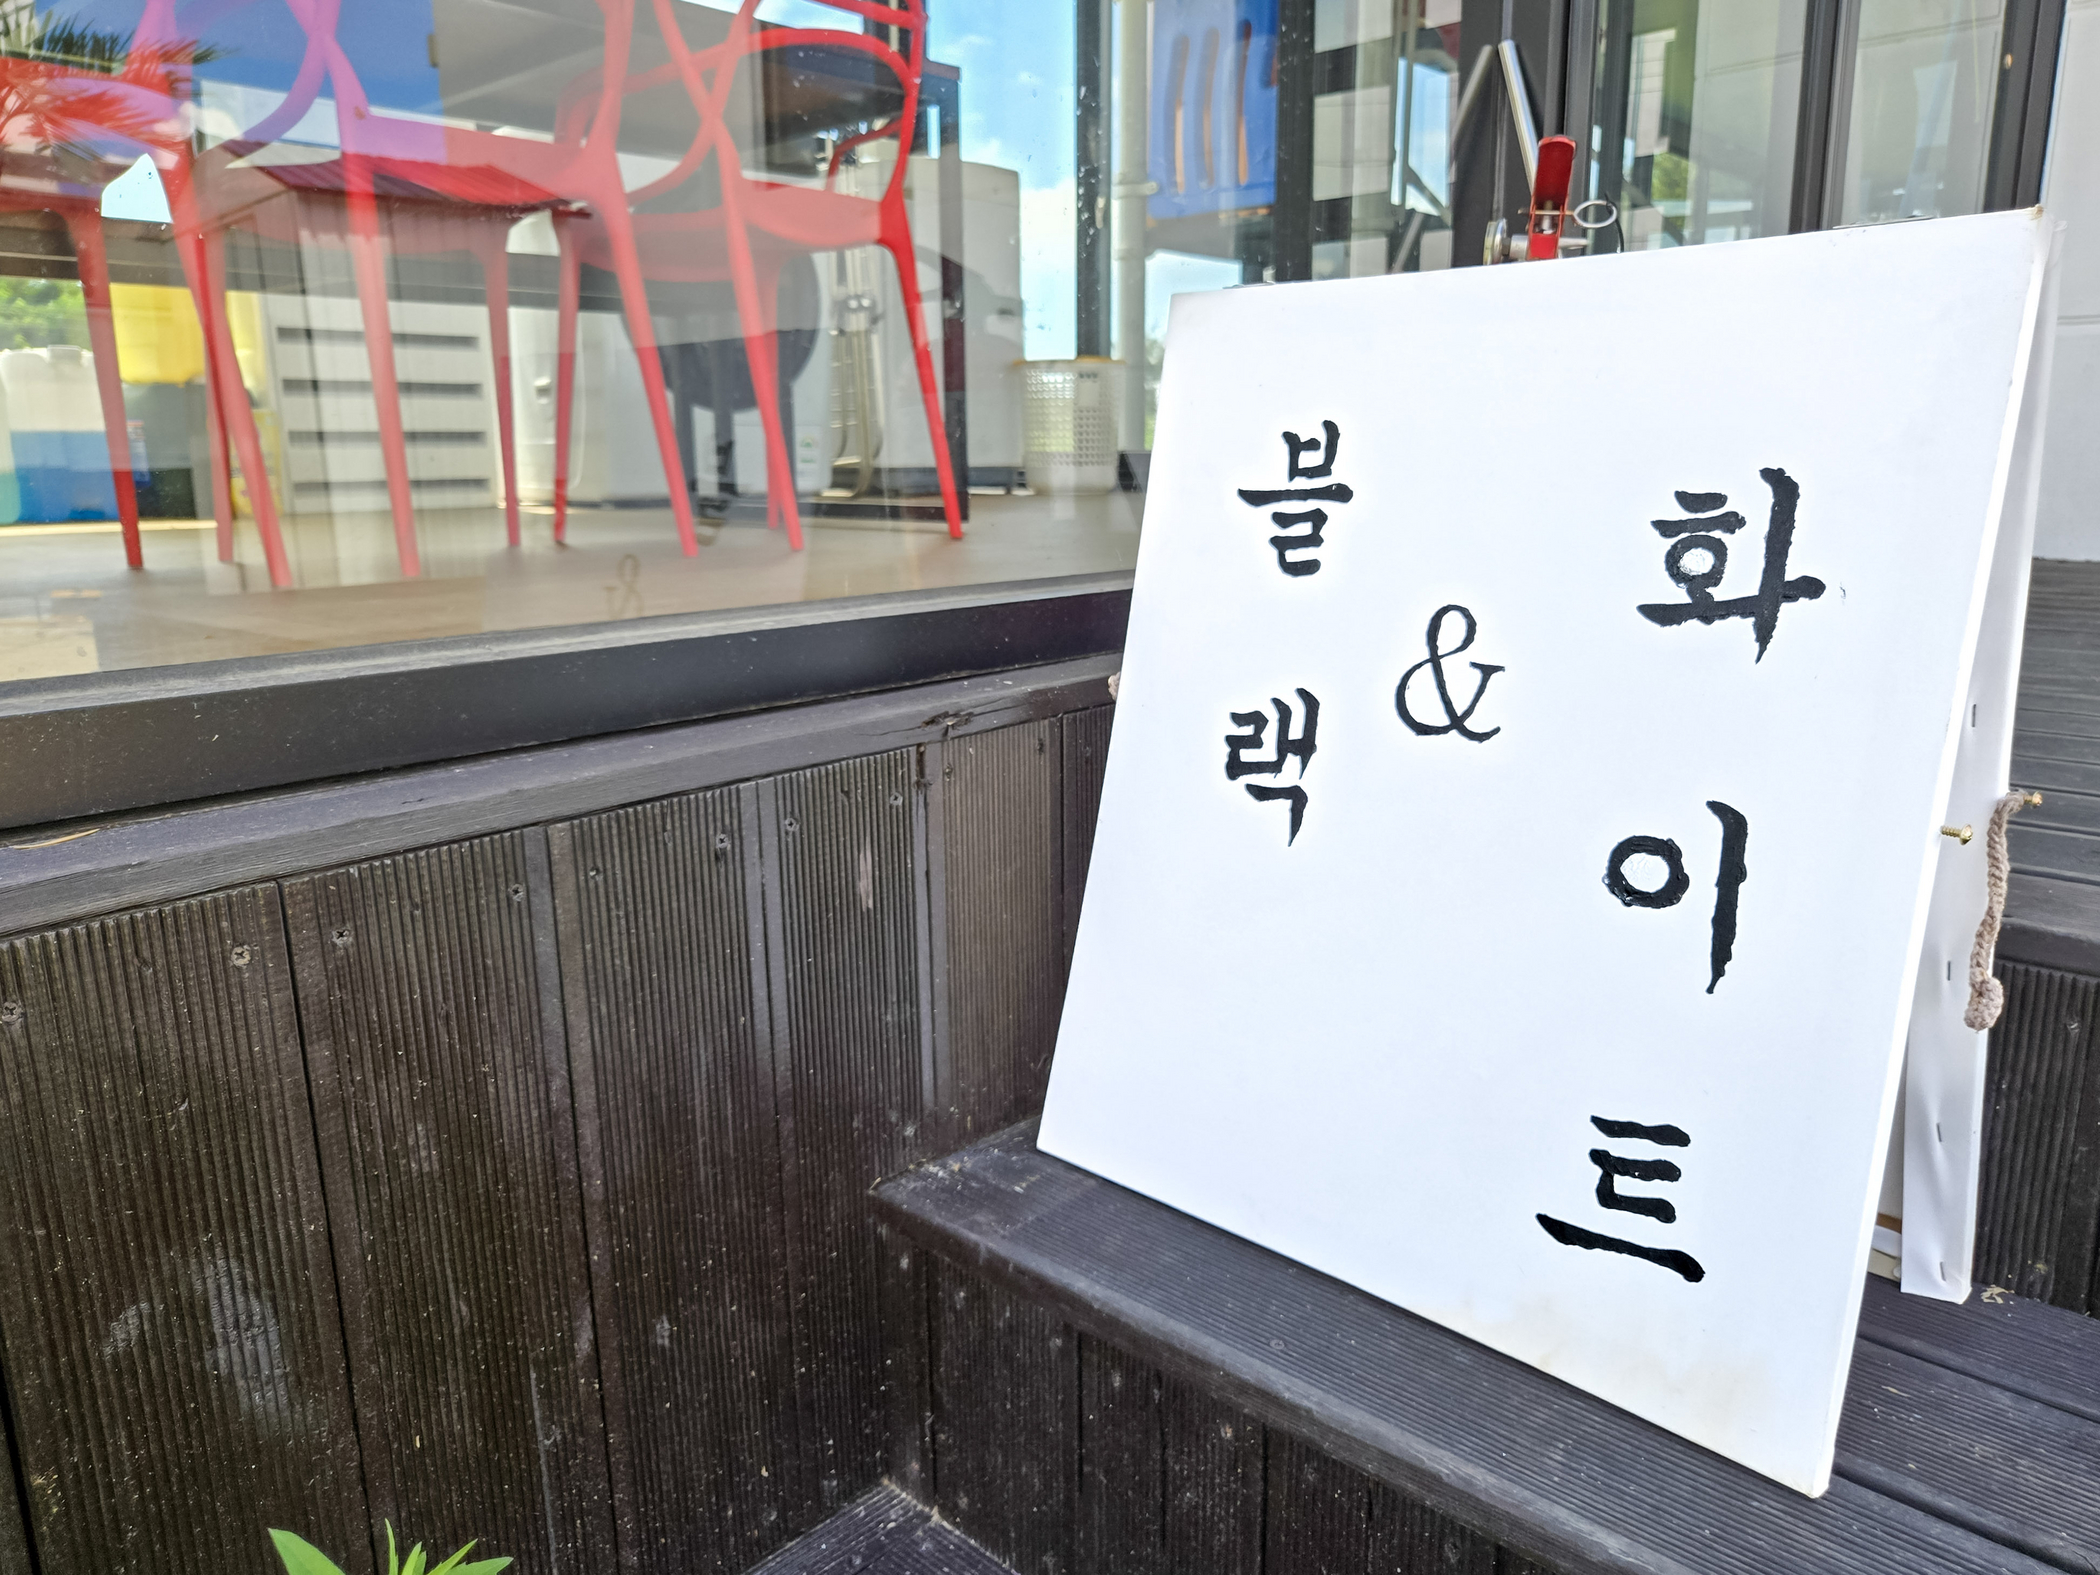 블랙
&
화이트